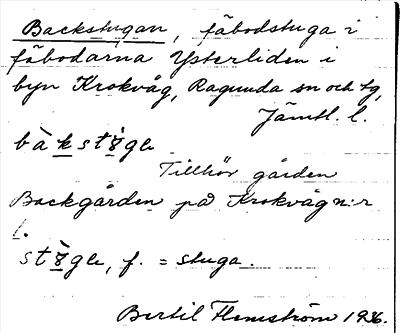 Backstugan, fäbodstuga i
fäbodarna Ysterliden i
byn Krokvåg, Ragunda sn och tg,
Jämtl. l.
bàkstì̀gle
Tillhör gården
Backgården på Krokvåg n:r
1.
stì̀gle, f. = stuga.
Bertil Flemström 1936.